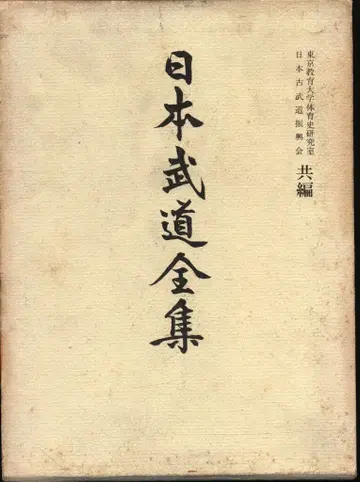 東京教育大学体育史研究室
日本古武道振興会
共編
日本武道全集